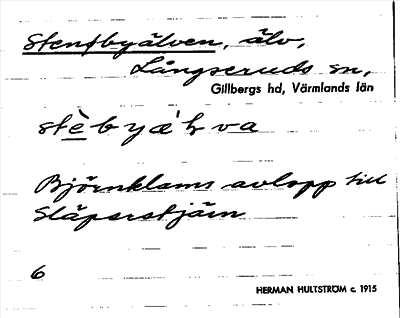 Stensbyälven, älv,
Långseruds sn,
Gillbergs hd, Värmlands län
stèbyæ̀ɫva
Björnklams avlopp till
Släparstjärn
6
HERMAN HULTSTRÖM c. 1915